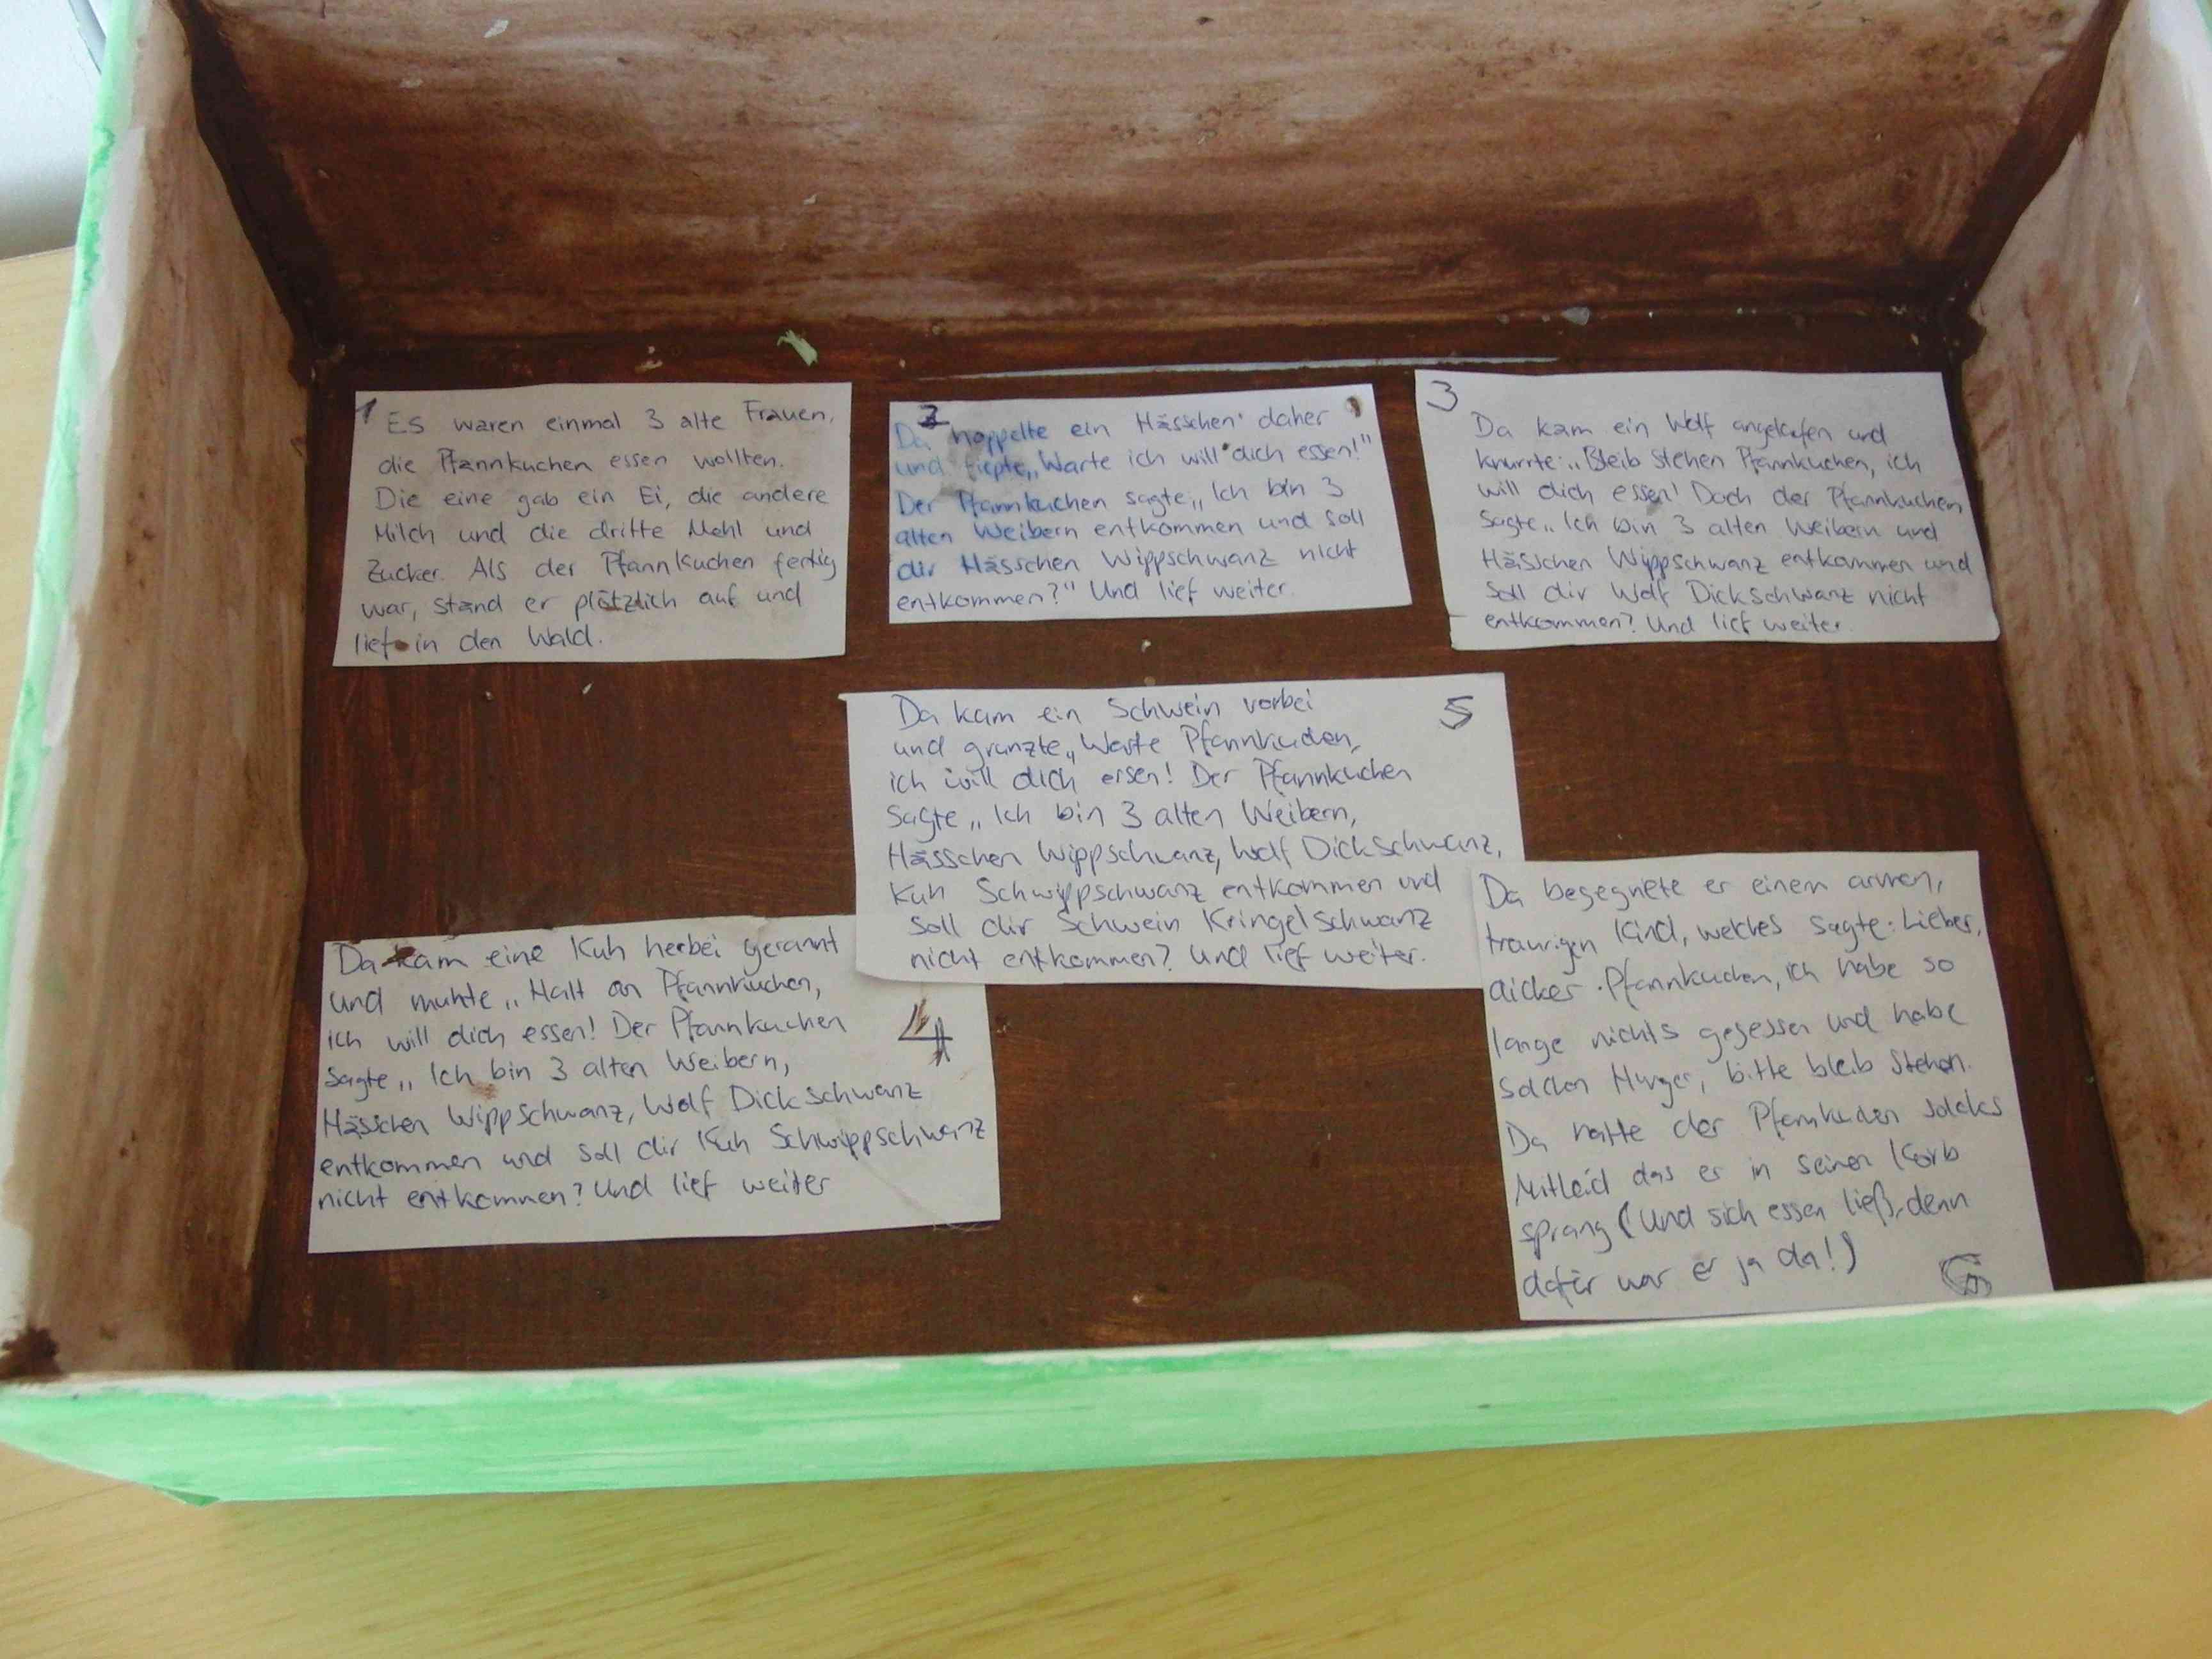 1
Es waren einmal 3 alte Frauen,
die Pfannkuchen essen wollten.
Die eine gab ein Ei, die andere
Milch und die dritte Mehl und
Zucker. Als der Pfannkuchen fertig
war, stand er plötzlich auf und
lief in den Wald.
2
Da hoppelte ein Hässchen daher
und fiepte „Warte ich will dich essen!"
Der Pfannkuchen sagte „Ich bin 3
alten Weibern entkommen und soll
dir Hässchen Wippschwanz nicht
entkommen?" Und lief weiter.
3
Da kam ein Wolf angelaufen und
knurrte: „Bleib stehen Pfannkuchen, ich
will dich essen! Doch der Pfannkuchen
sagte „Ich bin 3 alten Weibern und
Hässchen Wippschwanz entkommen und
soll dir Wolf Dickschwanz nicht
entkommen? Und lief weiter.
Da kam eine Kuh herbei gerannt
und muhte „Halt an Pfannkuchen,
ich will dich essen! Der Pfannkuchen
sagte „Ich bin 3 alten Weibern,
Hässchen Wippschwanz, Wolf Dickschwanz
entkommen und soll dir Kuh Schwippschwanz
nicht entkommen? Und lief weiter
4
Da kam ein Schwein vorbei
5
und grunzte „Warte Pfannkuchen,
ich will dich essen! Der Pfannkuchen
sagte „Ich bin 3 alten Weibern,
Hässchen Wippschwanz, Wolf Dickschwanz,
Kuh Schwippschwanz entkommen und
soll dir Schwein Kringelschwanz
nicht entkommen? Und lief weiter.
Da begegnete er einem armen,
traurigen Kind, welches sagte: Lieber,
dicker Pfannkuchen, ich habe so
lange nichts gegessen und habe
solchen Hunger, bitte bleib stehen.
Da hatte der Pfannkuchen solches
Mitleid das er in seinen Korb
sprang (Und sich essen ließ, denn
dafür war er ja da!)
6